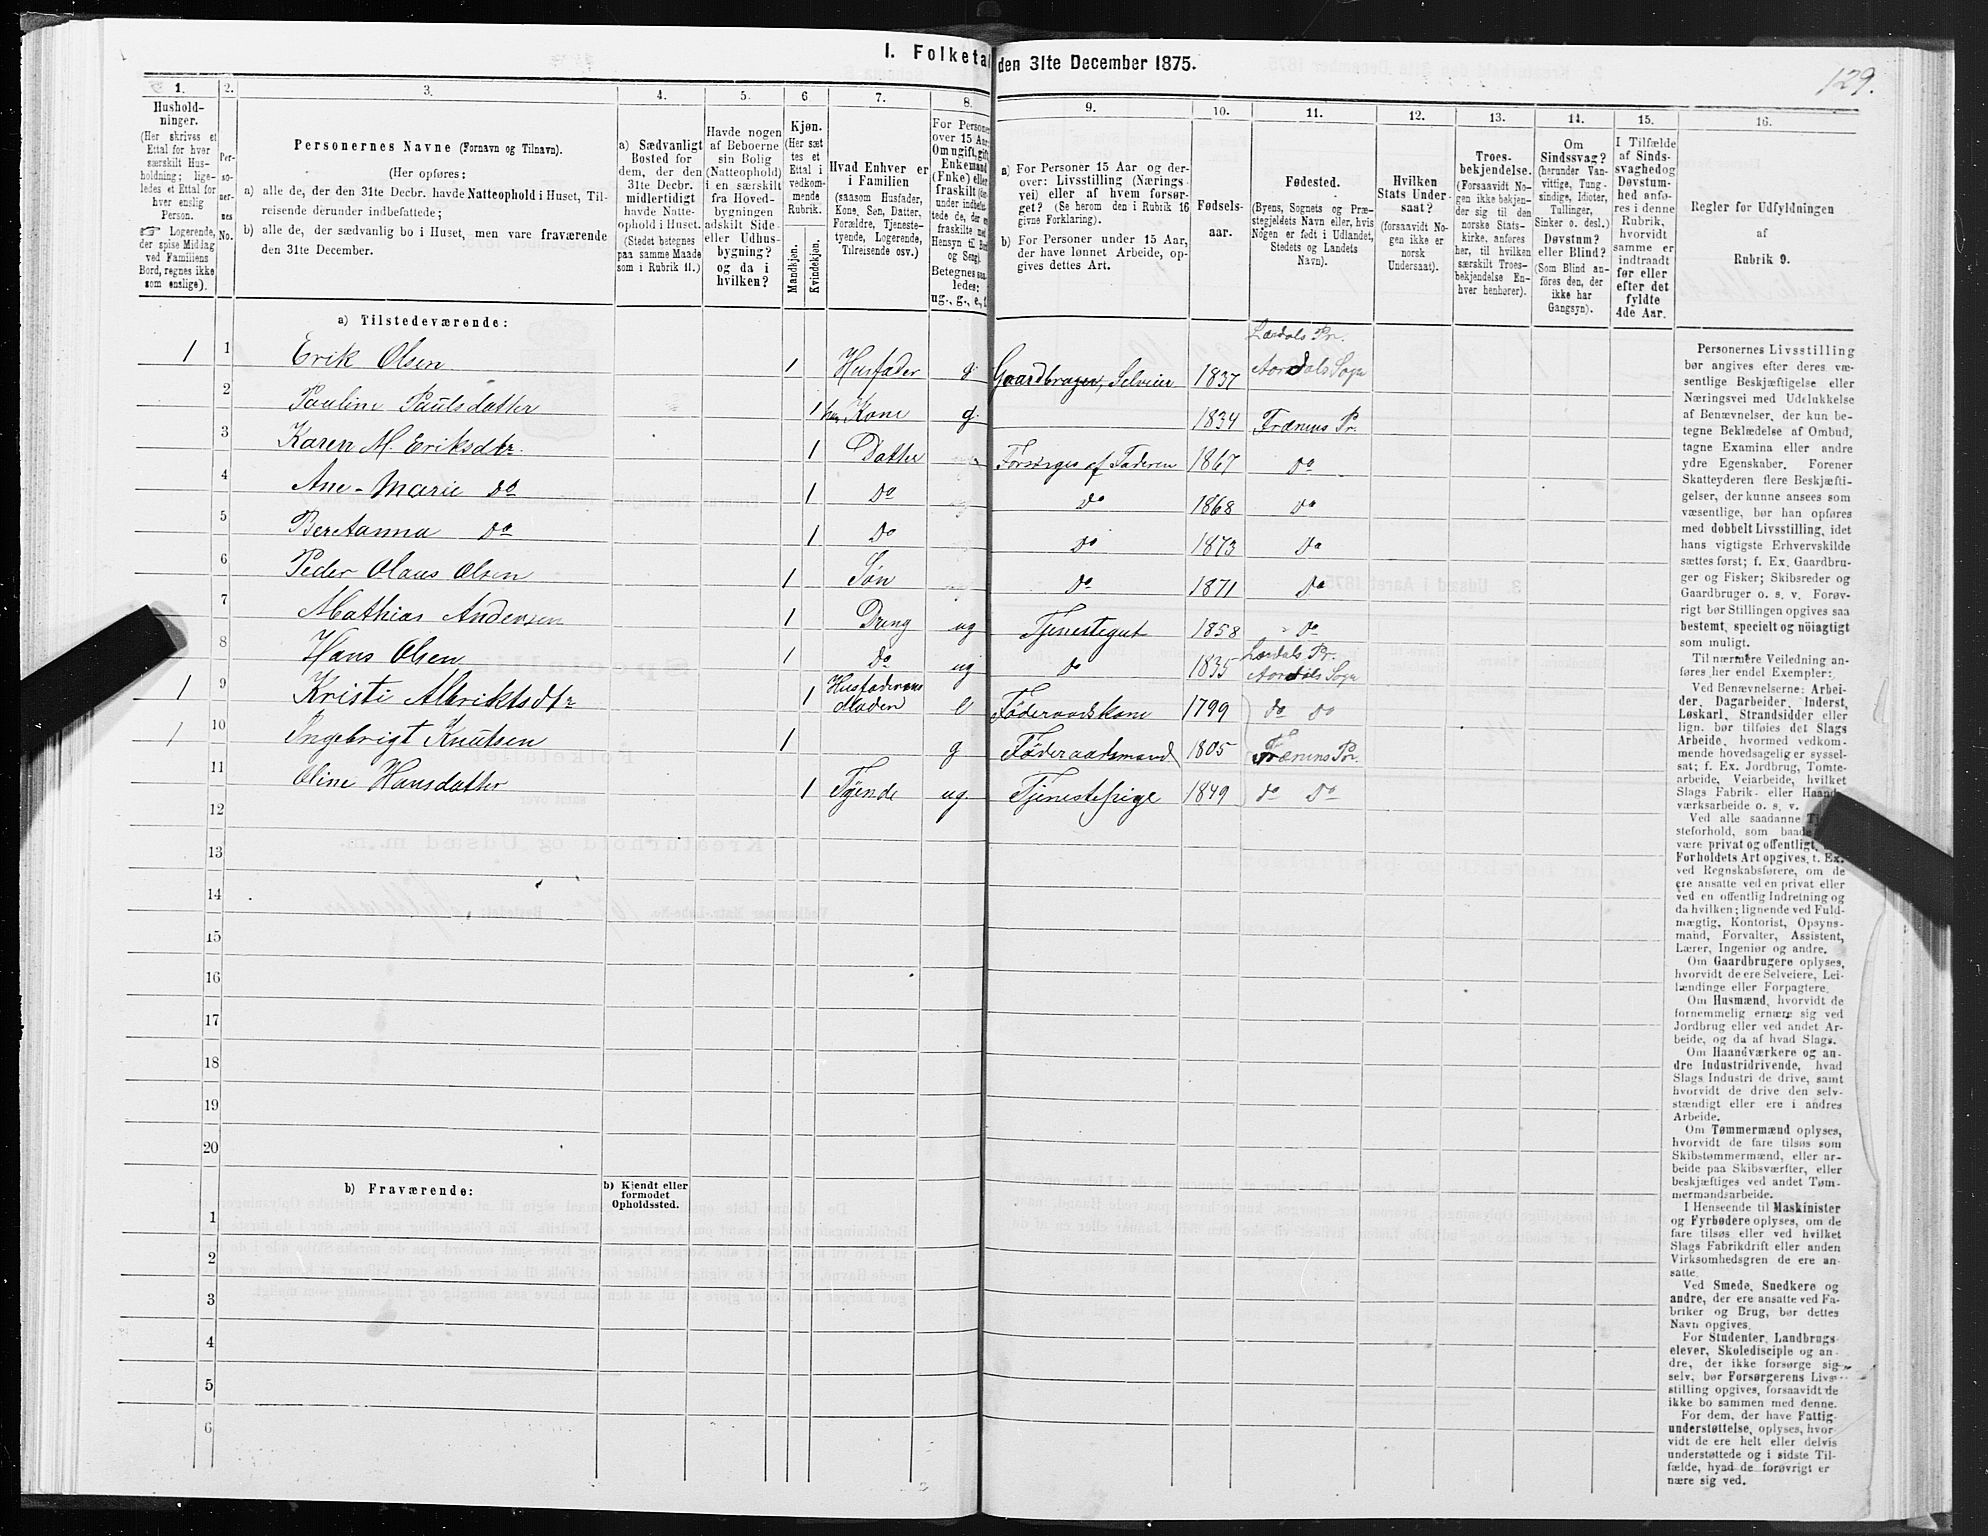 I. Folketal den 31te December 1875.
129.
1. 2. 3. 4. 5. 6 7. 8. 9. 10. 11. 12. 13. 14. 15. 16.
Husholdninger.
(Her skrives et
Ettal for hver
særskilt Husholdning;
ligeledes et Ettal for
hver enslig
Person.
Logerende,
der spise Middag
ved Familiens
Bord, regnes ikke
som enslige).
Personernes No.
Personernes Navne (Fornavn og Tilnavn).
(Her opføres:
a) alle de, der den 31te Decbr. havde Natteophold i Huset, Tilreisende
derunder indbefattede;
b) alle de, der sædvanlig bo i Huset, men vare fraværende
den 31te December.
a) Sædvanligt
Bosted for
dem, der den
31te Decbr.
midlertidigt
havde Natteophold
i Huset.
(Stedet betegnes
paa samme Maade
som i Rubrik 11.)
Havde nogen
af Beboerne
sin Bolig
(Natteophold)
i en særskilt
fra Hovedbygningen
adskilt Side-
eller Udhusbygning?
og da i
hvilken?
Kjøn.
(Her sættes
et
Ettal i
vedkommende
Rubrik.
Mandkjøn.
Kvindekjøn.
Hvad Enhver er
i Familien
(saasom Husfader,
Kone, Søn, Datter,
Forældre, Tjenestetyende,
Logerende,
Tilreisende osv.)
For Personer
over 15 Aar:
Om ugift, gift,
Enkemand
(Enke) eller
fraskilt
Betegnes saaledes:
ug., g., e., f.
a) For Personer 15 Aar og derover:
Livsstilling (Næringsvei)
eller af hvem forsørget?
(Se herom den i Rubrik 16
givne Forklaring).
b) For Personer under 15 Aar,
der have lønnet Arbeide, opgives
dettes Art.
Fødselsaar.
Fødested.
(Byens, Sognets og Præstegjeldets
Navn eller, hvis
Nogen er født i Udlandet,
Stedets og Landets
Navn).
Hvilken
Stats Undersaat?
(forsaavidt Nogen
ikke er
norsk
Undersaat).
Troesbekjendelse.
(Forsaavidt Nogen
ikke bekjender
sig til den
norske Statskirke,
anføres
her, til hvilken
særskilt Troesbekjendelse
Enhver
henhører).
Om
Sindssvag?
(herunder Vanvittige,
Tungsindige,
Idioter,
Tullinger,
Sinker o. desl.)
Døvstum?
eller Blind?
(Som Blind anføres
den, der
ikke har
Gangsyn).
I Tilfælde
af Sindssvaghed
og
Døvstumhed
anføres
i denne
Rubrik,
hvorvidt
samme er
indtraadt
før eller
efter det
fyldte
4de Aar.
Regler for Udfyldningen
af
Rubrik 9.
a) Tilstedeværende:
1 1 Erik Olsen 1 Husfader g Gaardbruger, Selveier 1837 Lærdals Pr. Aordals Sogn
2 Pauline Paulsdatter 1 hs Kone g. 1834 Frænens Pr.
3 Karen M. Eriksdtr. 1 Datter Forsørges af Faderen 1867 Do
4 Ane-Marie Do 1 Do Do 1868 Do
5 Beretanna Do 1 Do Do 1873 Do
6 Peder Olaus Olsen 1 Søn Do 1871 Do
7 Mathias Andersen 1 Dreng ug Tjenestegut 1858 Do
8 Hans Olsen 1 Do ug Do 1835 Lærdals Pr. Aordals Sogn
1 9 Kristi Albriktsdtr 1 Husfaderens Moder e Føderaadskone 1799 Do Do
1 10 Ingebrigt Knutsen 1 g Føderaadsmand 1805 Frænens Pr.
11 Oline Hansdatter 1 Tyende ug. Tjenestepige 1849 Do Do
12
13
14
15
16
17
18
19
20
b) Fraværende:
b) Kjendt eller
formodet
Opholdssted.
1
2
3
4
5
6
Personernes Livsstilling
bør angives efter deres væsentlige
Beskjæftigelse eller
Næringsvei med Udelukkelse
af Benævnelser, der kun betegne
Beklædelse af Ombud,
tagne Examina eller andre
ydre Egenskaber. Forener
Skatteyderen flere Beskjæftigelser,
der kunne ansees som
væsentlige, bør han opføres
med dobbelt Livsstilling, idet
hans vigtigste Erhvervskilde
sættes først; f. Ex. Gaardbruger
og Fisker; Skibsreder og
Gaardbruger o. s. v. Forøvrigt
bør Stillingen opgives saa
bestemt, specielt og nøiagtigt
som muligt.
Til nærmere Veiledning anføres
her endel Exempler:
Ved Benævnelserne: Arbeider,
Dagarbeider, Inderst,
Løskarl, Strandsidder eller
lign. bør tilføies det Slags
Arbeide, hvormed vedkommende
hovedsagelig er sysselsat;
f. Ex. Jordbrug, Tomtearbeide,
Veiarbeide, hvilket
Slags Fabrik- eller Haandværksarbeide
o. s. v.
Ved alle saadanne Tjenesteforhold,
som baade
være privat og offentligt,
Forholdets Art opgives, t. Ex.
ved Regnskabsførere, om de
ere ansatte ved en privat eller
ved en offentlig Indretning og
da hvilken; lignende ved Fuldmægtig,
Kontorist, Opsynsmand,
Forvalter, Assistent,
Lærer, Ingeniør og andre.
Om Gaardbrugere oplyses,
hvorvidt de ere Selveiere, Leilændinge
eller Forpagtere.
Om Husmænd, hvorvidt de
fornemmelig ernære sig ved
Jordbrug eller ved andet Arbeide,
og da af hvad Slags.
Om Haandværkere og andre
Industridrivende, hvad
Slags Industri de drive, samt
hvorvidt de drive den selvstændigt
eller ere i andres
Arbeide.
Om Tømmermænd oplyses,
hvorvidt de fare tilsøs som
Skibstømmermænd, eller arbeide
paa Skibsværfter, eller
beskjæftiges ved andet Tømmermandsarbeide.
I Henseende til Maskinister
og Fyrbødere oplyses, om de
fare tilsøs eller ved hvilket
Slags Fabrikdrift eller anden
Virksomhedsgren de ere ansatte.
Ved Smede, Snedkere og
andre, der ere ansatte ved Fabriker
og Brug, bør dettes
Navn opgives.
For Studenter, Landbrugselever,
Skoledisciple og andre,
der ikke forsørge sig
selv, bør Forsørgerens Livsstilling
opgives, forsaavidt de
ikke bo sammen med denne.
For dem, der have Fattigunderstøttelse,
oplyses, hvorvidt
de ere helt eller delvis
understøttede og i sidste Tilfælde,
hvad de forøvrigt er
nære sig ved.